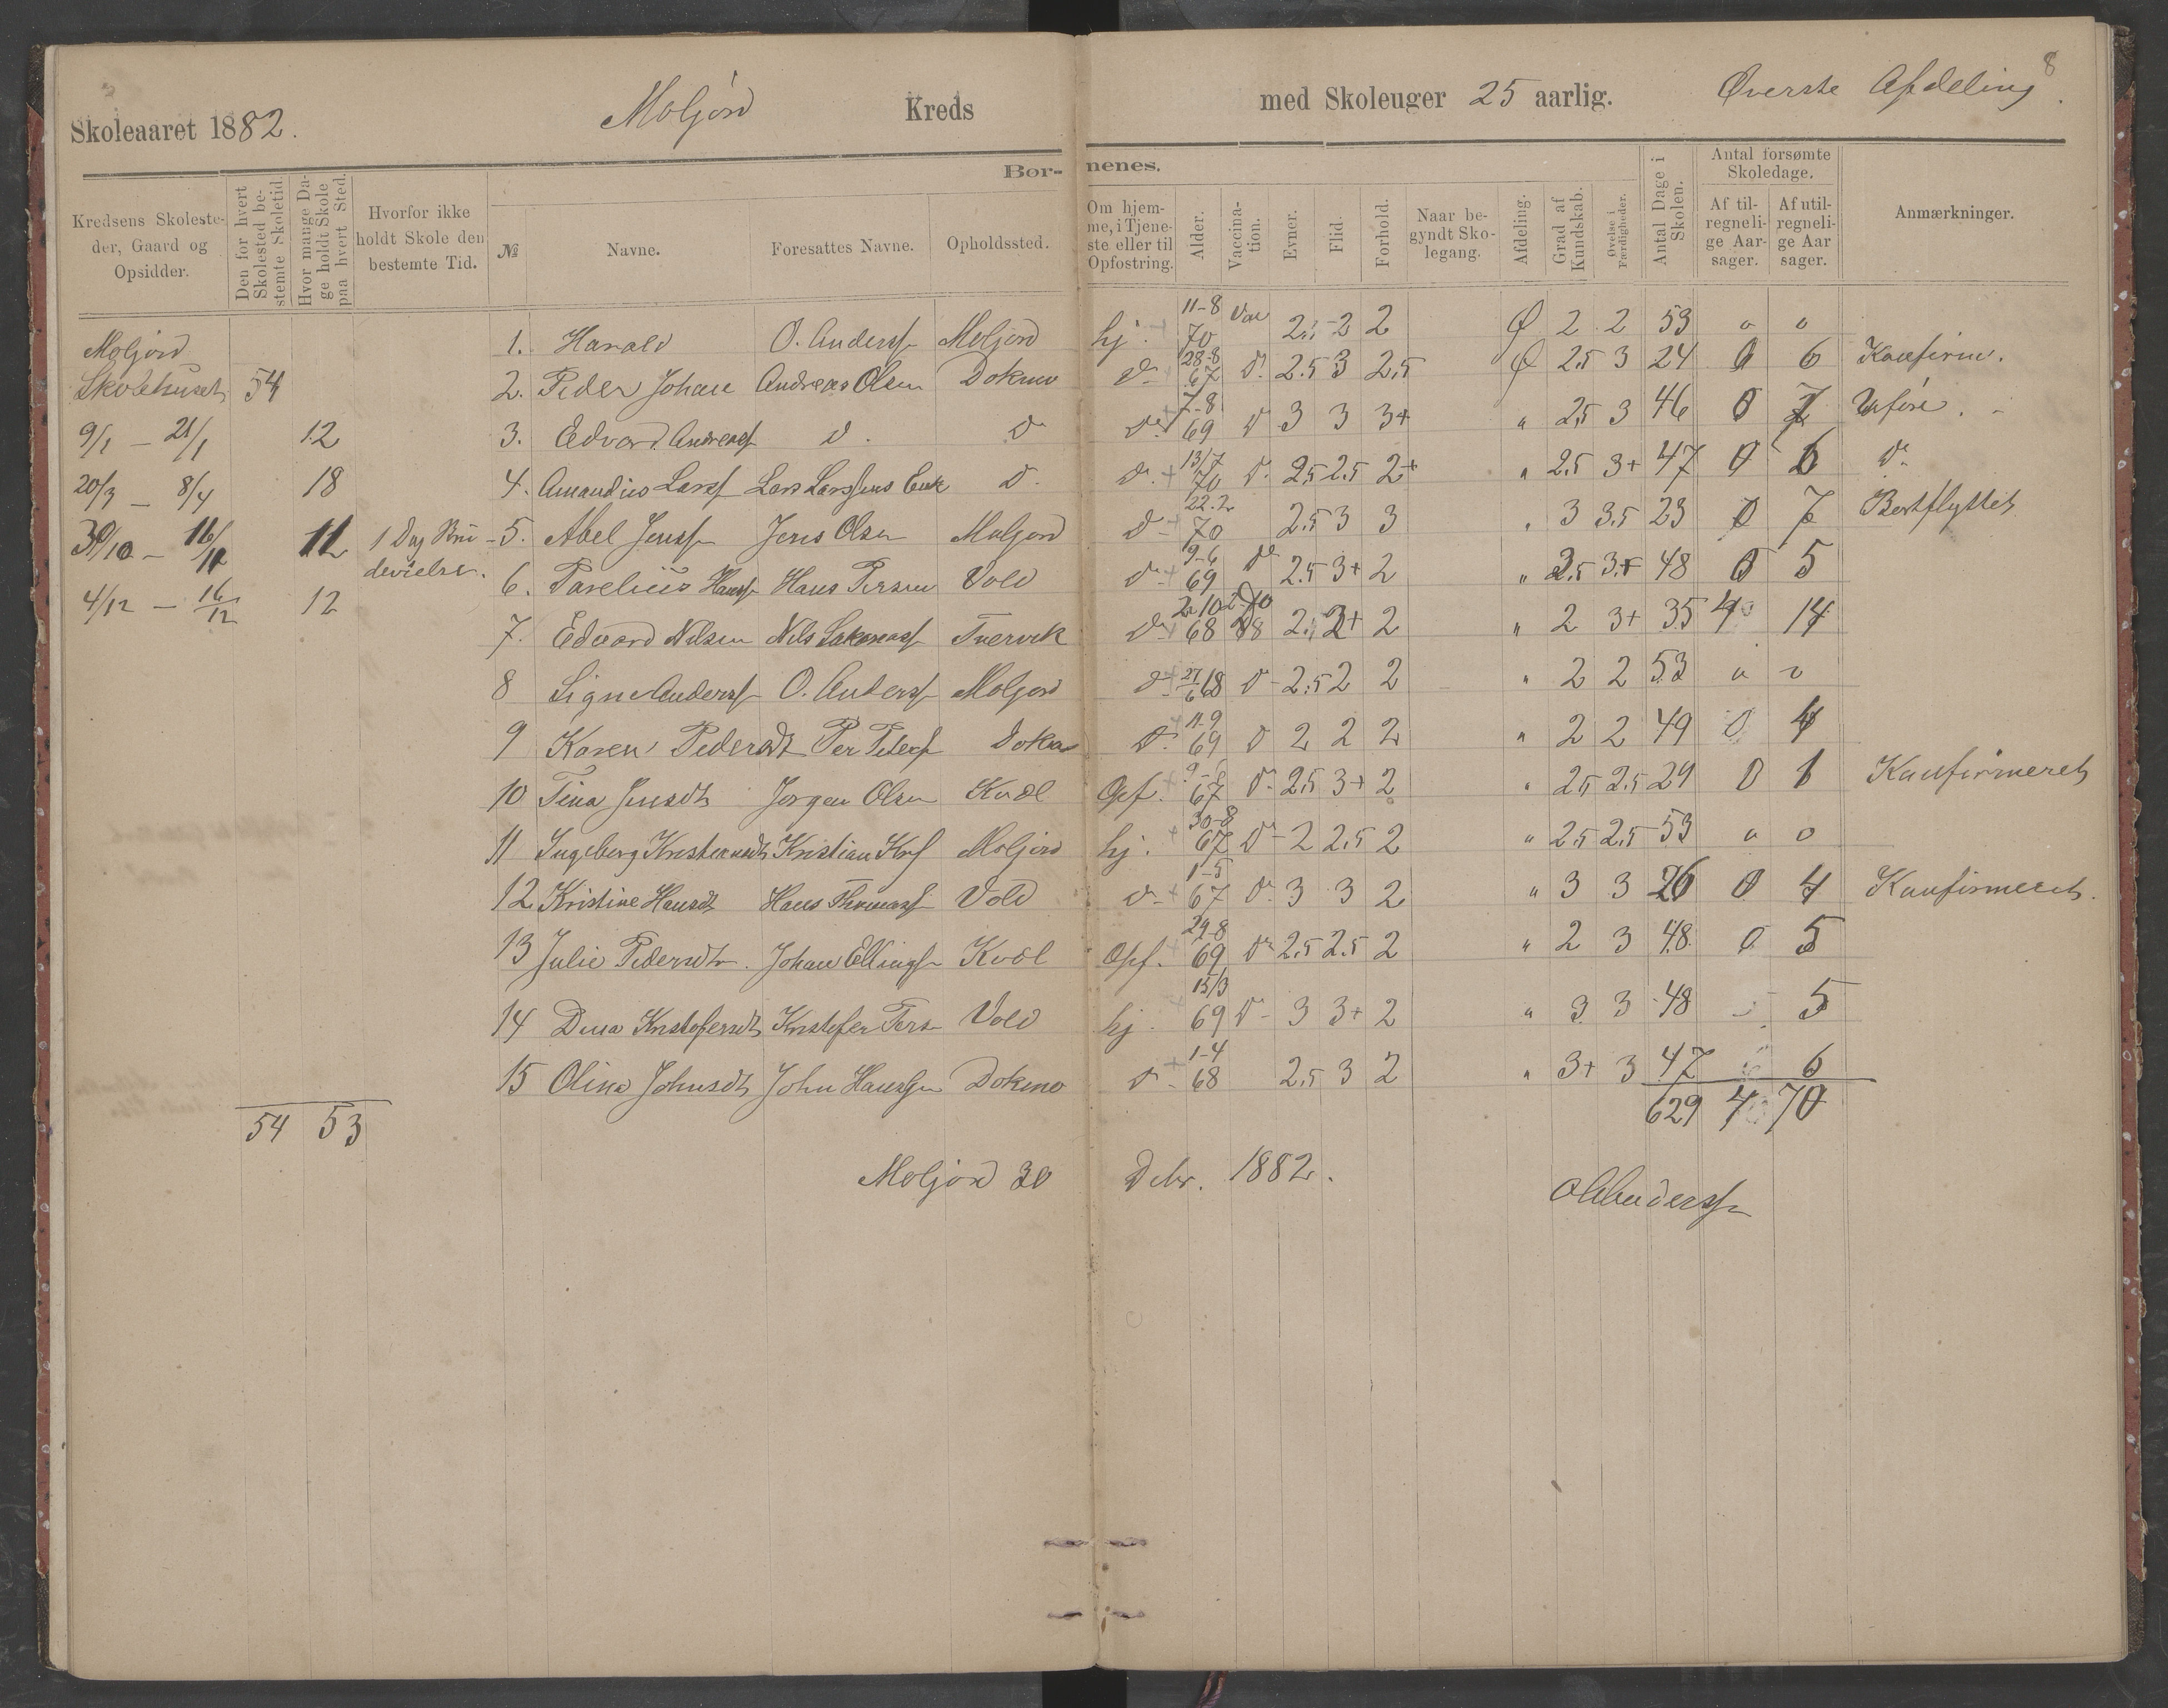 8
Skoleaaret 1882. Moljord Kreds med Skoleuger 25 aarlig. Øverste Afdeling.
Børnenes.
Kredsens Skolesteder, Gaard og Opsidder. Den for hvert Skolested bestemte Skoletid. Hvor mange Dage holdt Skole paa hvert Sted. Hvorfor ikke holdt Skole den bestemte Tid. № Navne. Foresattes Navne. Opholdssted. Om hjemme, i Tjeneste eller til Opfostring. Alder. Vaccination. Evner. Flid. Forhold. Naar begyndt Skolegang. Afdeling. Grad af Kundskab. Øvelse i Færdigheder. Antal Dage i Skolen. Antal forsømte Skoledage. Af tilregnelige Aarsager. Af utilregnelige Aarsager. Anmærkninger.
Moljord
Skolehuset 54
9/1 – 21/1 12
20/3 – 8/4 18
30/10 – 11 1 Dag Brudevielse.
4/12 – 16/12 12
54 53
1. Harald O. Anderss Moljord hj. 11-8 70 Vac 2.5 2 2 Ø 2 2 53 0 0
2. Peder Johan Andreas Olsen Dokmo d. 28-8 67 d. 2.5 3 2,5 Ø 2.5 3 24 0 6 Konfirm.
3. Edvard Andreass d. d. d. 7-8 69 d 3 3 3+ " 2,5 3 46 0 7 Uføre.
4. Amandus Larss Lars Larssens Enk d. d. 13/7 70 d. 2.5 2.5 2+ " 2.5 3+ 47 0 6 d.
5. Abel Jenss Jens Olsen Moljord d. 22.2 70 2.5 3 3 " 3 3.5 23 0 7 Bortflyttet
6. Parelius Hanss Hans Persen Vold d. 9-6 69 d 2.5 3+ 2 " 2.5 3+ 48 0 5
7. Edvard Nilsen Nils Tvervik d. 2-10 68 2.5 2+ 2 " 2 3+ 35 4 14
8 Signe Anderss O. Anderss Moljord d. 27/6 68 d 2.5 2 2 " 2 2 53 0 0
9 Karen Pedersdt Per Peders Dokmo d. 11-9 69 d 2 2 2 " 2 2 49 0 4
10 Tina Jensdt Jørgen Olsen Kvæl Opf. 9-8 67 d. 2.5 3+ 2 " 2.5 2.5 29 0 1 Konfirmeret
11 Ingeborg Kristensdt Kristian Krs Moljord hj. 30-8 67 d 2 2.5 2 " 2.5 2.5 53 0 0
12 Kristine Hansdt Hans Thomass Vold d. 1-5 67 d. 3 3 2 " 3 3 26 0 4 Konfirmeret.
13 Julie Pedersdt. Johan Ellings Kvæl Opf. 29-8 69 d 2.5 2.5 2 " 2 3 48 0 5
14 Dina Kristofersdt Kristofer Pers Vold hj. 15/3 69 d 3 3+ 2 " 3 3 48 5
15 Olina Johnsdt John Hanssen Dokmo d. 1-4 68 2.5 3 2 " 3+ 3 47 6
629 4 70
Moljord 30 Debr. 1882. O. Anderss